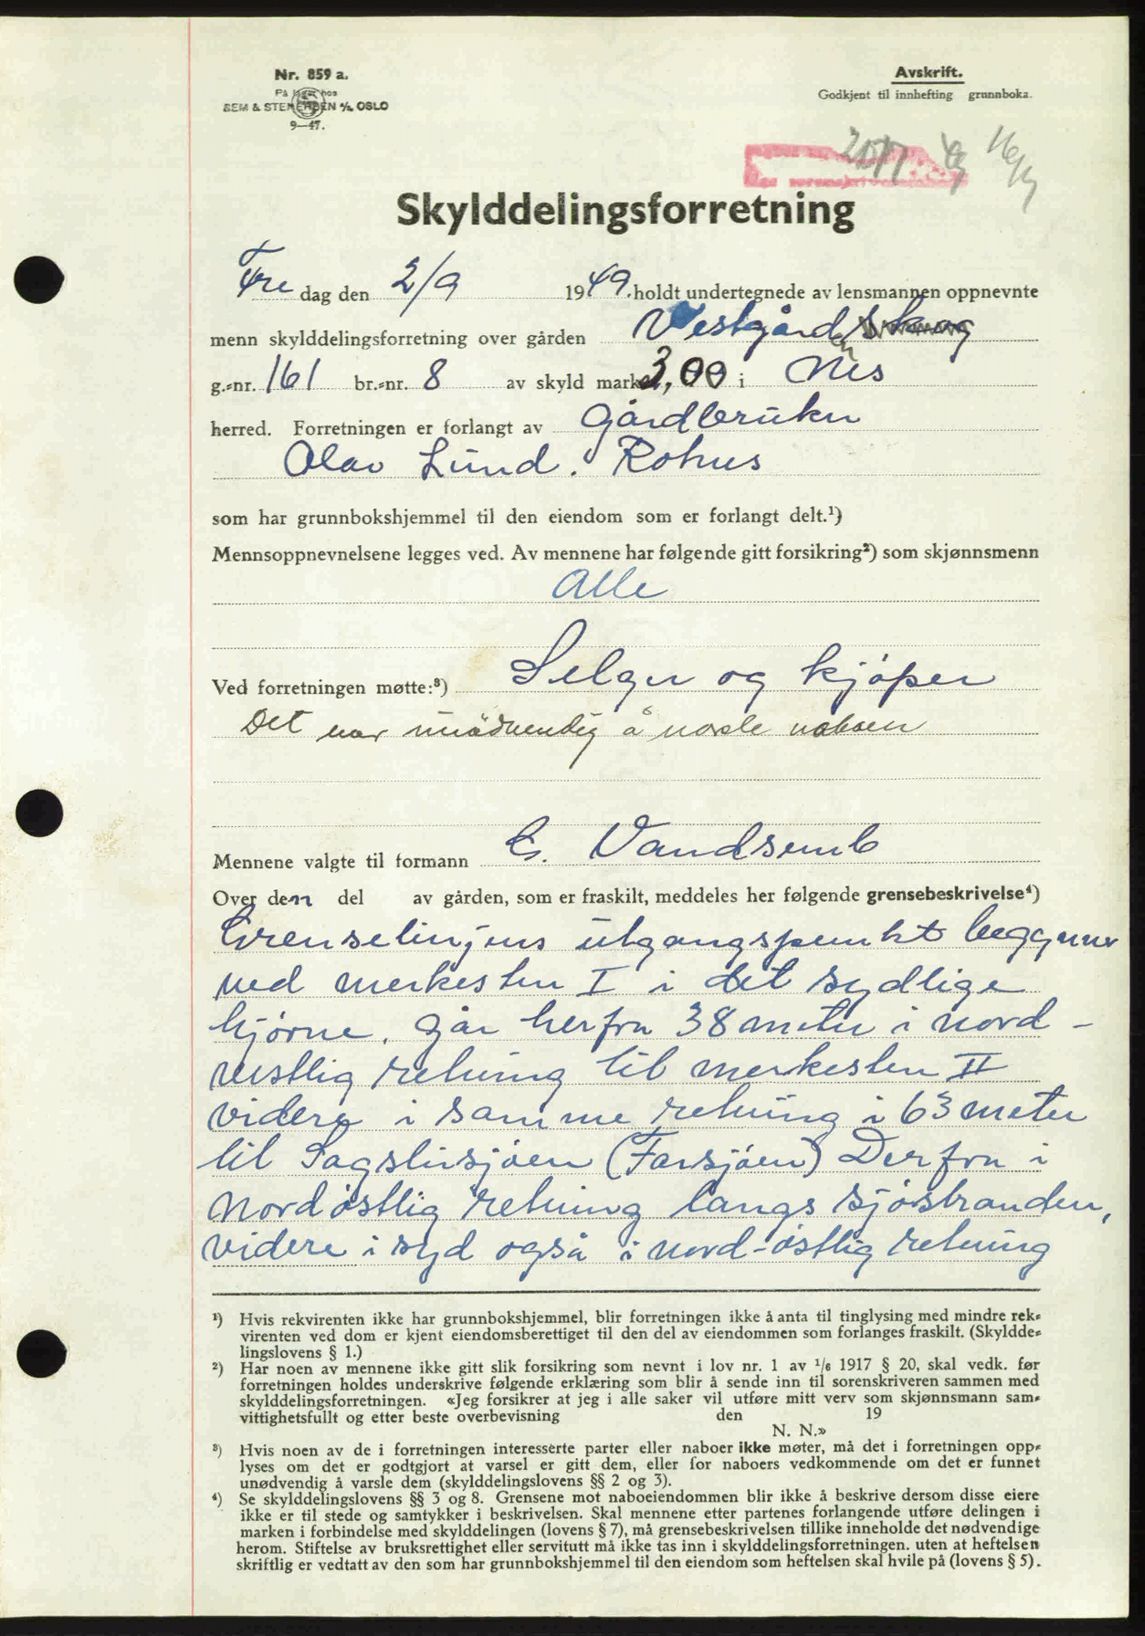 Nr. 859 a.
På lager hos
SEM & STENERSEN A/S OSLO
9—47.
Avskrift.
Godkjent til innhefting grunnboka.
Skylddelingsforretning
Fre dag den 2/9 1949. holdt undertegnede av lensmannen oppnevnte
menn skylddelingsforretning over gården Vestgård skog
g.-nr. 161 br.-nr. 8 av skyld mark 3,00 i Nes
herred. Forretningen er forlangt av Gårdbruker
Olav Lund. Rohus
som har grunnbokshjemmel til den eiendom som er forlangt delt.¹)
Mennsoppnevnelsene legges ved. Av mennene har følgende gitt forsikring²) som skjønnsmenn
Alle
Ved forretningen møtte:³) Selger og kjøper
Det var unødvendig å varsle naboen
Mennene valgte til formann E. Vandsemb
Over den del av gården, som er fraskilt, meddeles her følgende grensebeskrivelse⁴)
Grenselinjens utgangspunkt begynner
ved merkesten I i det sydlige
hjørne. Går herfra 38 meter i nord-
vestlig retning til merkesten II
videre i samme retning i 63 meter
til Sagslusjøen (Farsjøen) Derfra i
Nordøstlig retning langs sjøstranden,
videre i syd også i nord-østlig retning
¹) Hvis rekvirenten ikke har grunnbokshjemmel, blir forretningen ikke å anta til tinglysing med mindre rek-
virenten ved dom er kjent eiendomsberettiget til den del av eiendommen som forlanges fraskilt. (Skyldde-
lingslovens § 1.)
²) Har noen av mennene ikke gitt slik forsikring som nevnt i lov nr. 1 av 1/6 1917 § 20, skal vedk. før
forretningen holdes underskrive følgende erklæring som blir å sende inn til sorenskriveren sammen med
skylddelingsforretningen. «Jeg forsikrer at jeg i alle saker vil utføre mitt verv som skjønnsmann sam-
vittighetsfullt og etter beste overbevisning den 19
N. N.»
³) Hvis noen av de i forretningen interesserte parter eller naboer ikke møter, må det i forretningen opp-
lyses om det er godtgjort at varsel er gitt dem, eller for naboers vedkommende om det er funnet
unødvendig å varsle dem (skylddelingslovens §§ 2 og 3).
⁴) Se skylddelingslovens §§ 3 og 8. Grensene mot naboeiendommen blir ikke å beskrive dersom disse eiere
ikke er til stede og samtykker i beskrivelsen. Skal mennene etter partenes forlangende utføre delingen i
marken i forbindelse med skylddelingen (lovens § 7), må grensebeskrivelsen tillike inneholde det nødvendige
herom. Stiftelse av bruksrettighet eller servitutt må ikke tas inn i skylddelingsforretningen. uten at heftelsen
skriftlig er vedtatt av den som har grunnbokshjemmel til den eiendom som heftelsen skal hvile på (lovens § 5).